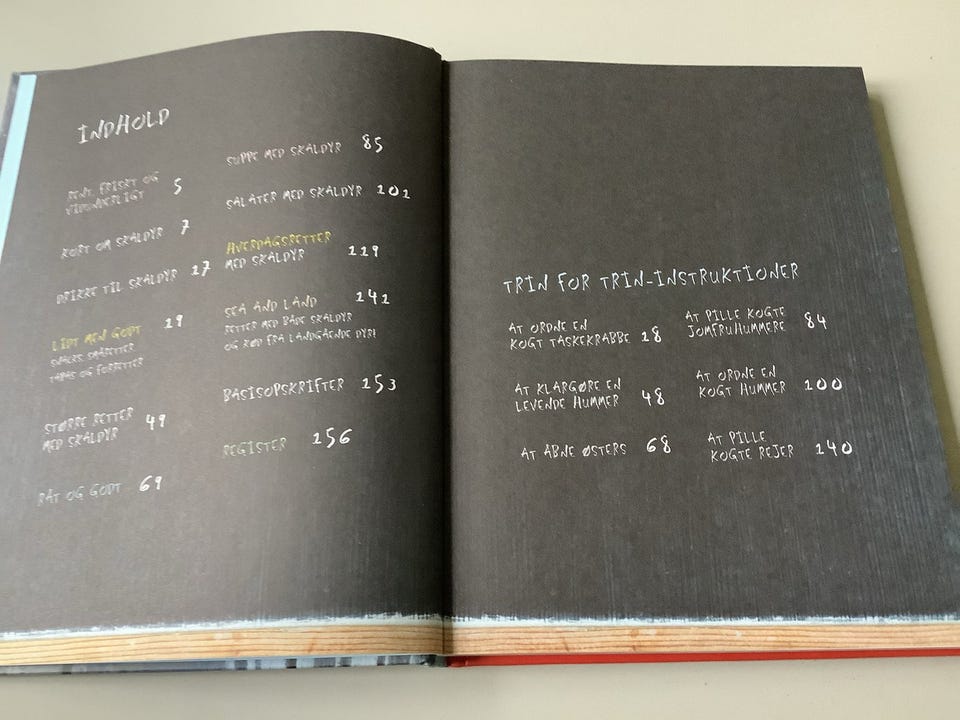 INDHOLD
RENT, FRISKT OG
VIDUNDERLIGT 5
KORT OM SKALDYR 7
DRIKKE TIL SKALDYR 17
LIDT MEN GODT 19
SNACKS, SMÅRETTER
TAPAS OG FORRETTER
STØRRE RETTER
MED SKALDYR 49
RÅT OG GODT 69
SUPPE MED SKALDYR 85
SALATER MED SKALDYR 101
HVERDAGSRETTER
MED SKALDYR 119
SEA AND LAND 141
RETTER MED BÅDE SKALDYR
OG KØD FRA LANDGÅENDE DYR!
BASISOPSKRIFTER 153
REGISTER 156
TRIN FOR TRIN-INSTRUKTIONER
AT ORDNE EN
KOGT TASKEKRABBE 18
AT KLARGØRE EN
LEVENDE HUMMER 48
AT ÅBNE ØSTERS 68
AT PILLE KOGTE
JOMFRUHUMMERE 84
AT ORDNE EN
KOGT HUMMER 100
AT PILLE
KOGTE REJER 140